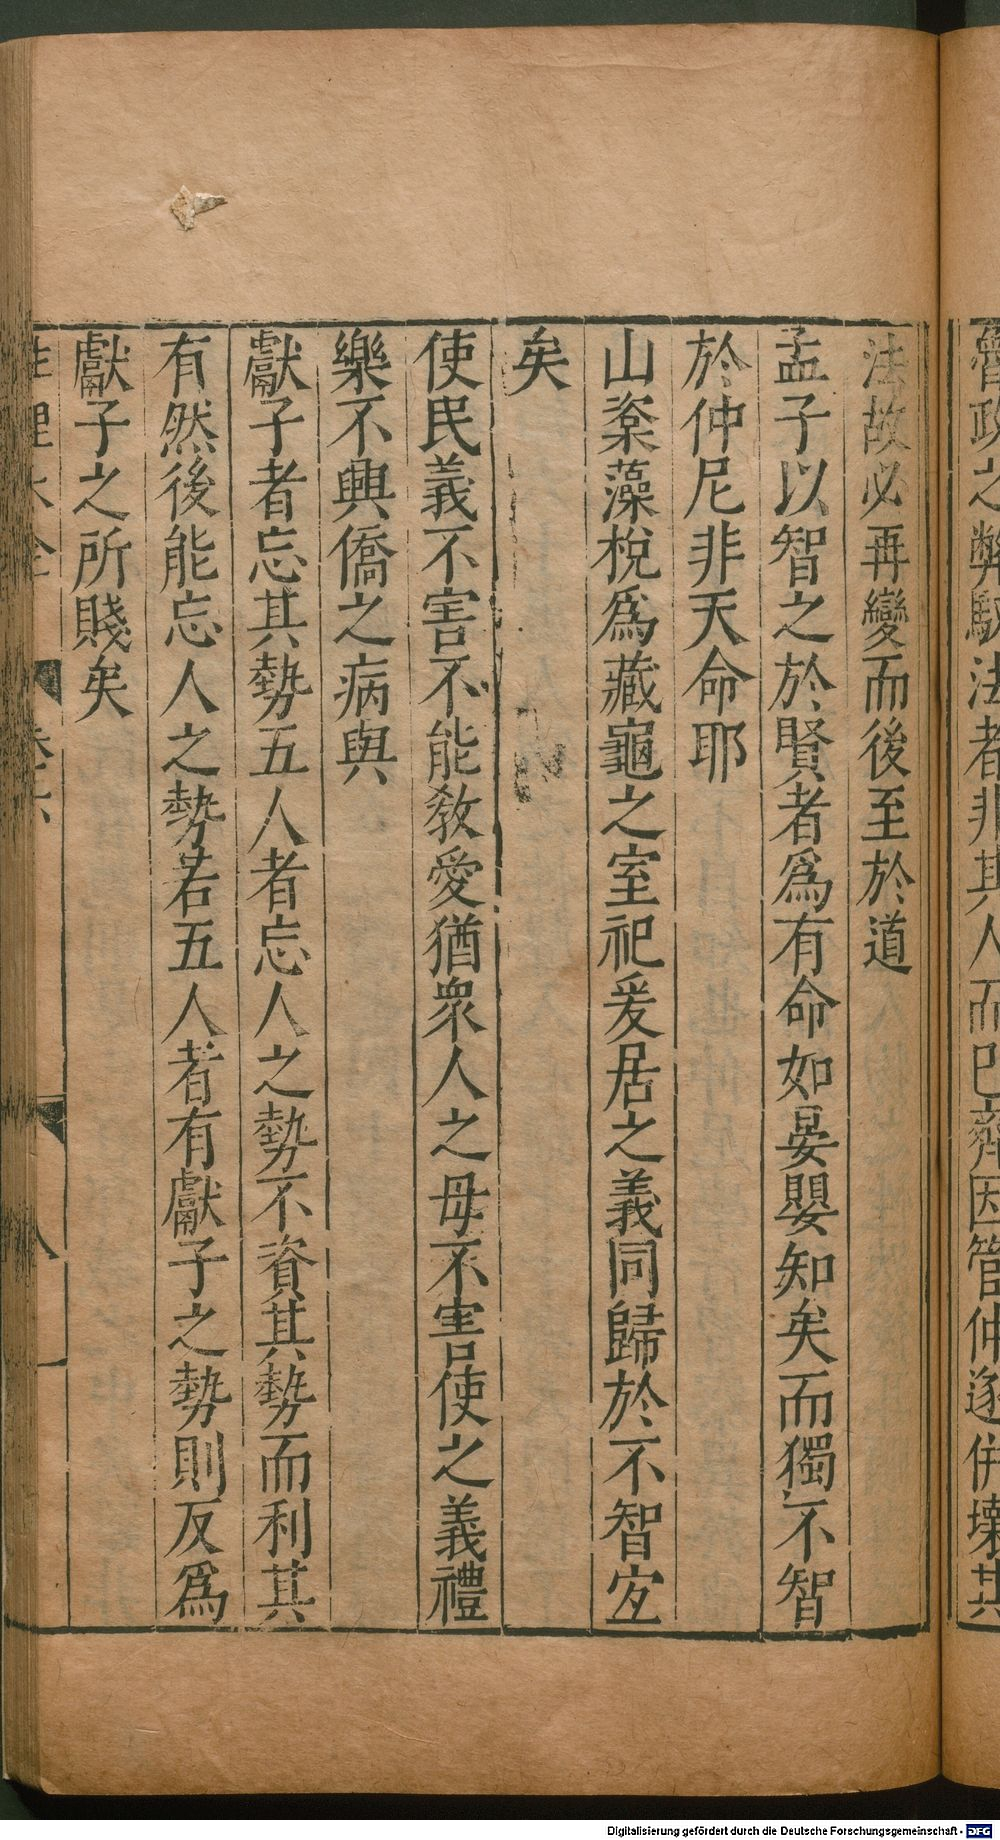 魯政之弊馭法者非其人而已齊因管仲遂併壞其
法故必再變而後至於道
孟子以智之於賢者爲有命如晏嬰知矣而獨不智
於仲尼非天命耶
山楶藻梲爲藏龜之室祀爰居之義同歸於不智宜
矣
使民義不害不能教愛猶衆人之母不害使之義禮
樂不興僑之病與
獻子者忘其勢五人者忘人之勢不資其勢而利其
有然後能忘人之勢若五人者有獻子之勢則反爲
獻子之所賤矣
性理大全 卷六 八
Digitalisierung gefördert durch die Deutsche Forschungsgemeinschaft - DFG